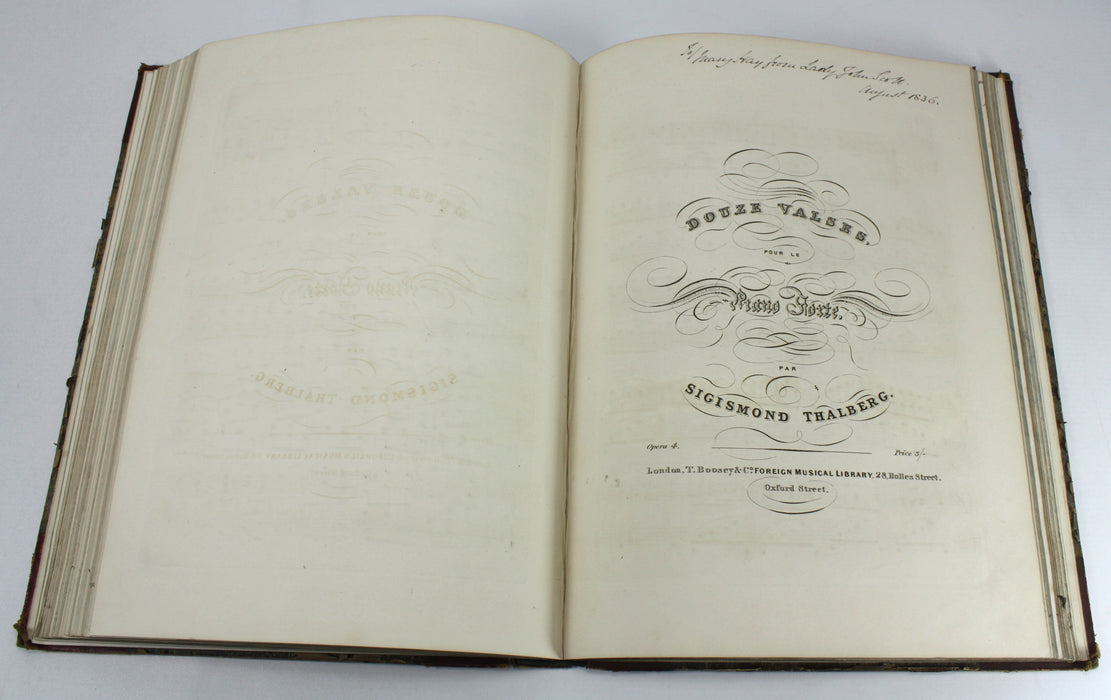 To/ Mary Hay from Lady John Scott.
August 1836.
DOUZE VALSES,
POUR LE
Piano Forte.
PAR
SIGISMOND THALBERG.
Opera 4. Price 5/-
London, T. Boosey & Co. FOREIGN MUSICAL LIBRARY, 28, Holles Street,
Oxford Street.